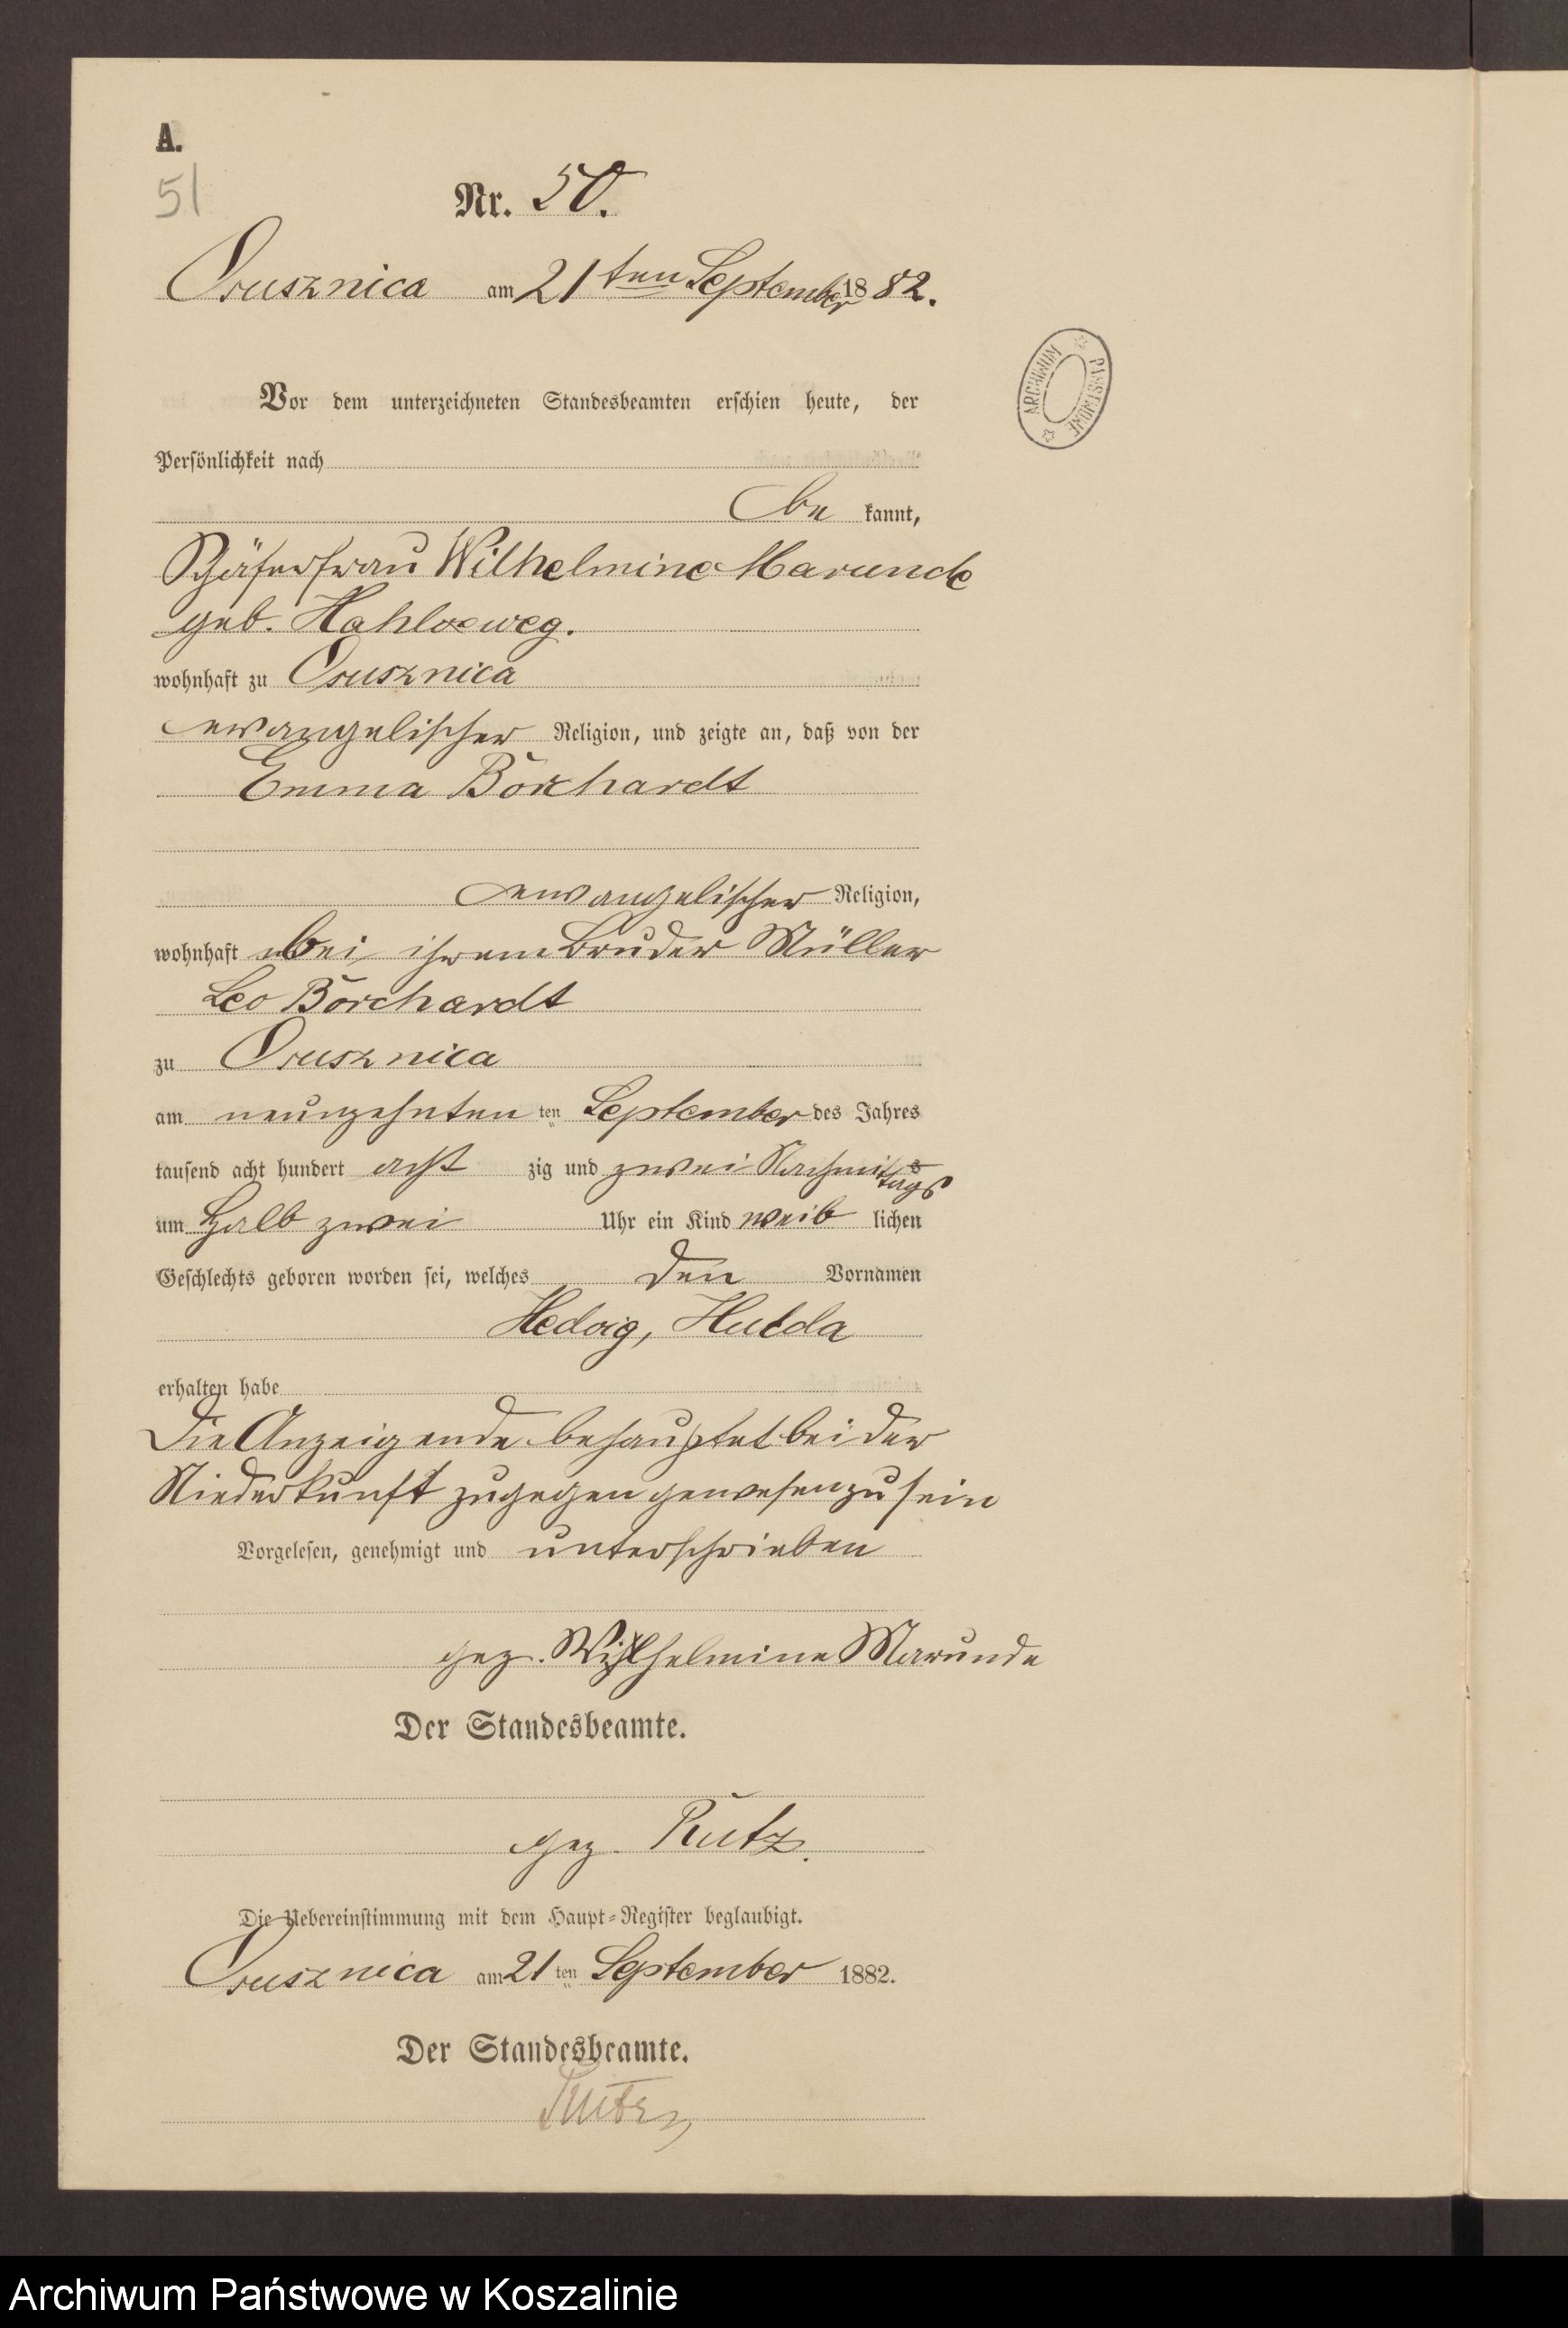 A.
51
Nr. 50.
Osusznica am 21ten September 1882.
ARCHIWUM PAŃSTWOWE
Vor dem unterzeichneten Standesbeamten erschien heute, der
Persönlichkeit nach
be kannt,
Schäferfrau Wilhelmine Marunde
geb. Hahlosweg.
wohnhaft zu Osusznica
evangelischer Religion, und zeigte an, daß von der
Emma Borchardt
evangelischer Religion,
wohnhaft bei ihrem Bruder Müller
Leo Borchardt
zu Osusznica
am neunzehnten ten September des Jahres
tausend acht hundert acht zig und zwei Nachmittags
um halb zwei Uhr ein Kind weib lichen
Geschlechts geboren worden sei, welches den Vornamen
Hedwig, Hulda
erhalten habe
Die Anzeigende behauptet bei der
Niederkunft zugegen gewesen zu sein
Vorgelesen, genehmigt und unterschrieben
gez. Wilhelmine Marunde
Der Standesbeamte.
gez. Rutz.
Die Uebereinstimmung mit dem Haupt-Register beglaubigt.
Osusznica am 21 ten September 1882.
Der Standesbeamte.
Rutz
Archiwum Państwowe w Koszalinie